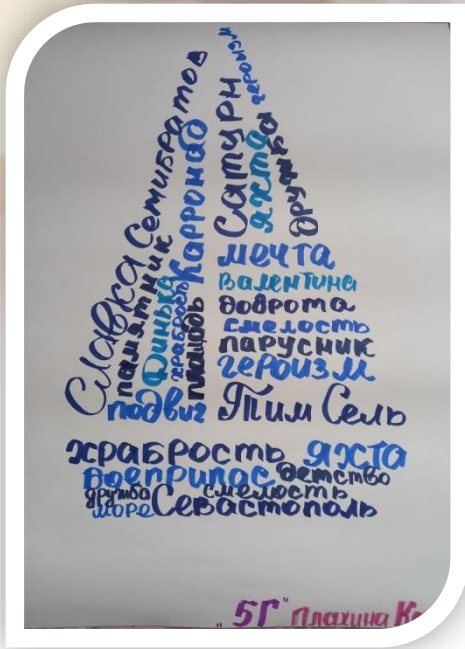 Славка Семибратов
памятник
Динька
храбрость
площадь
Карронад
подвиг
Сатурн
яхта
героизм
дружба
мечта
Валентина
доброта
смелость
парусник
героизм
Тим Сель
храбрость яхта
боеприпас детство
дружба смелость
море Севастополь
"5Г" Плахина